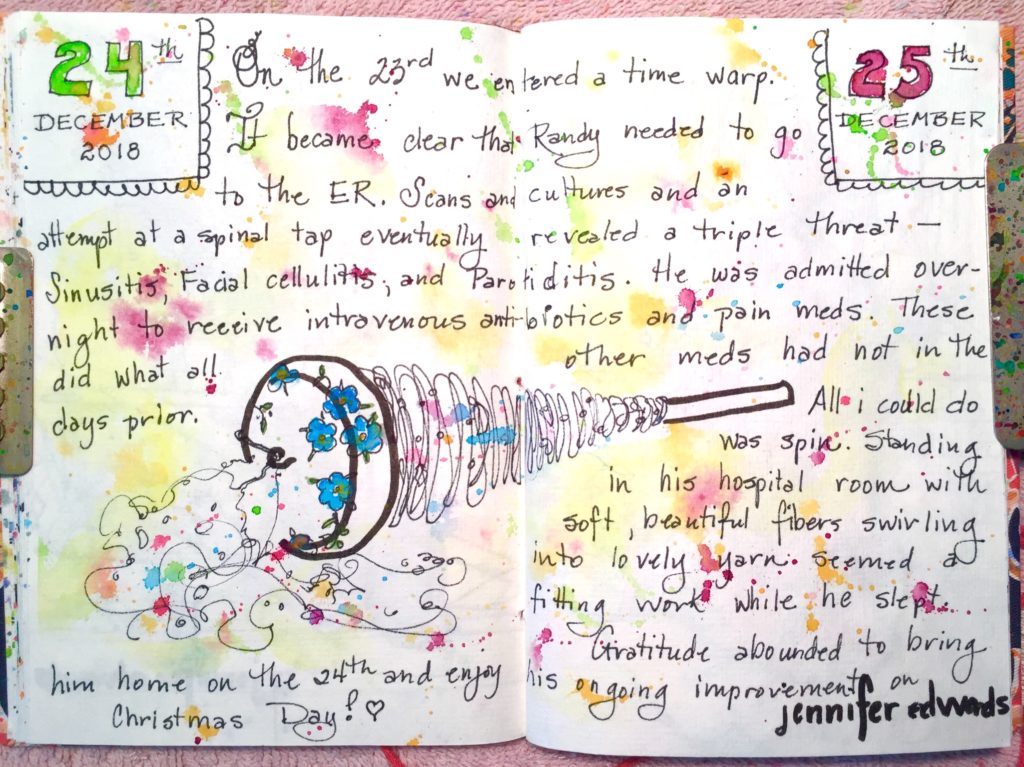 24th
DECEMBER
2018
25th
DECEMBER
2018
On the 23rd we entered a time warp.
It became clear that Randy needed to go
to the ER. Scans and cultures and an
attempt at a spinal tap eventually revealed a triple threat —
Sinusitis, Facial cellulitis, and Parotiditis. He was admitted over-
night to receive intravenous anti-biotics and pain meds. These
did what all other meds had not in the
days prior. All i could do
was spin. Standing
in his hospital room with
soft, beautiful fibers swirling
into lovely yarn seemed a
fitting work while he slept.
Gratitude abounded to bring
him home on the 24th and enjoy his ongoing improvement on
Christmas Day! ♡
jennifer edwards